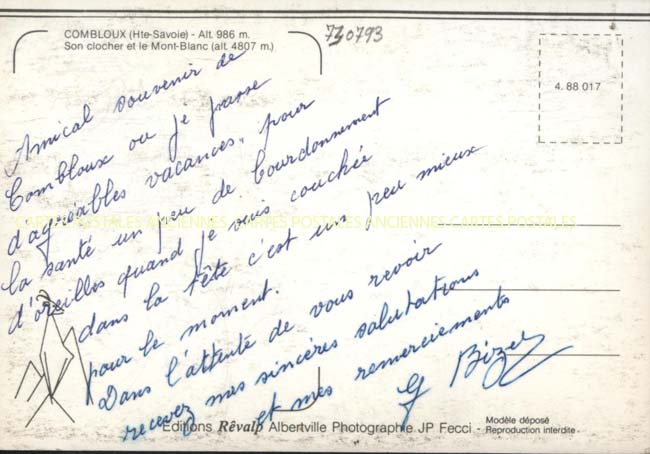 COMBLOUX (Hte-Savoie) - Alt. 986 m.
Son clocher et le Mont-Blanc (alt. 4807 m.)
730793
4. 88 017
Amical souvenir de
Combloux ou je passe
d'agréables vacances, pour
la santé un peu de bourdonnement
d'oreilles quand je suis couchée
dans la tête c'est un peu mieux
pour le moment.
Dans l'attente de vous revoir
recevez mes sincères salutations
et mes remerciements
G Bizel
CARTES POSTALES ANCIENNES CARTES POSTALES ANCIENNES CARTES POSTALES
Editions Rêvalp Albertville Photographie JP Fecci -
Modèle déposé
Reproduction interdite